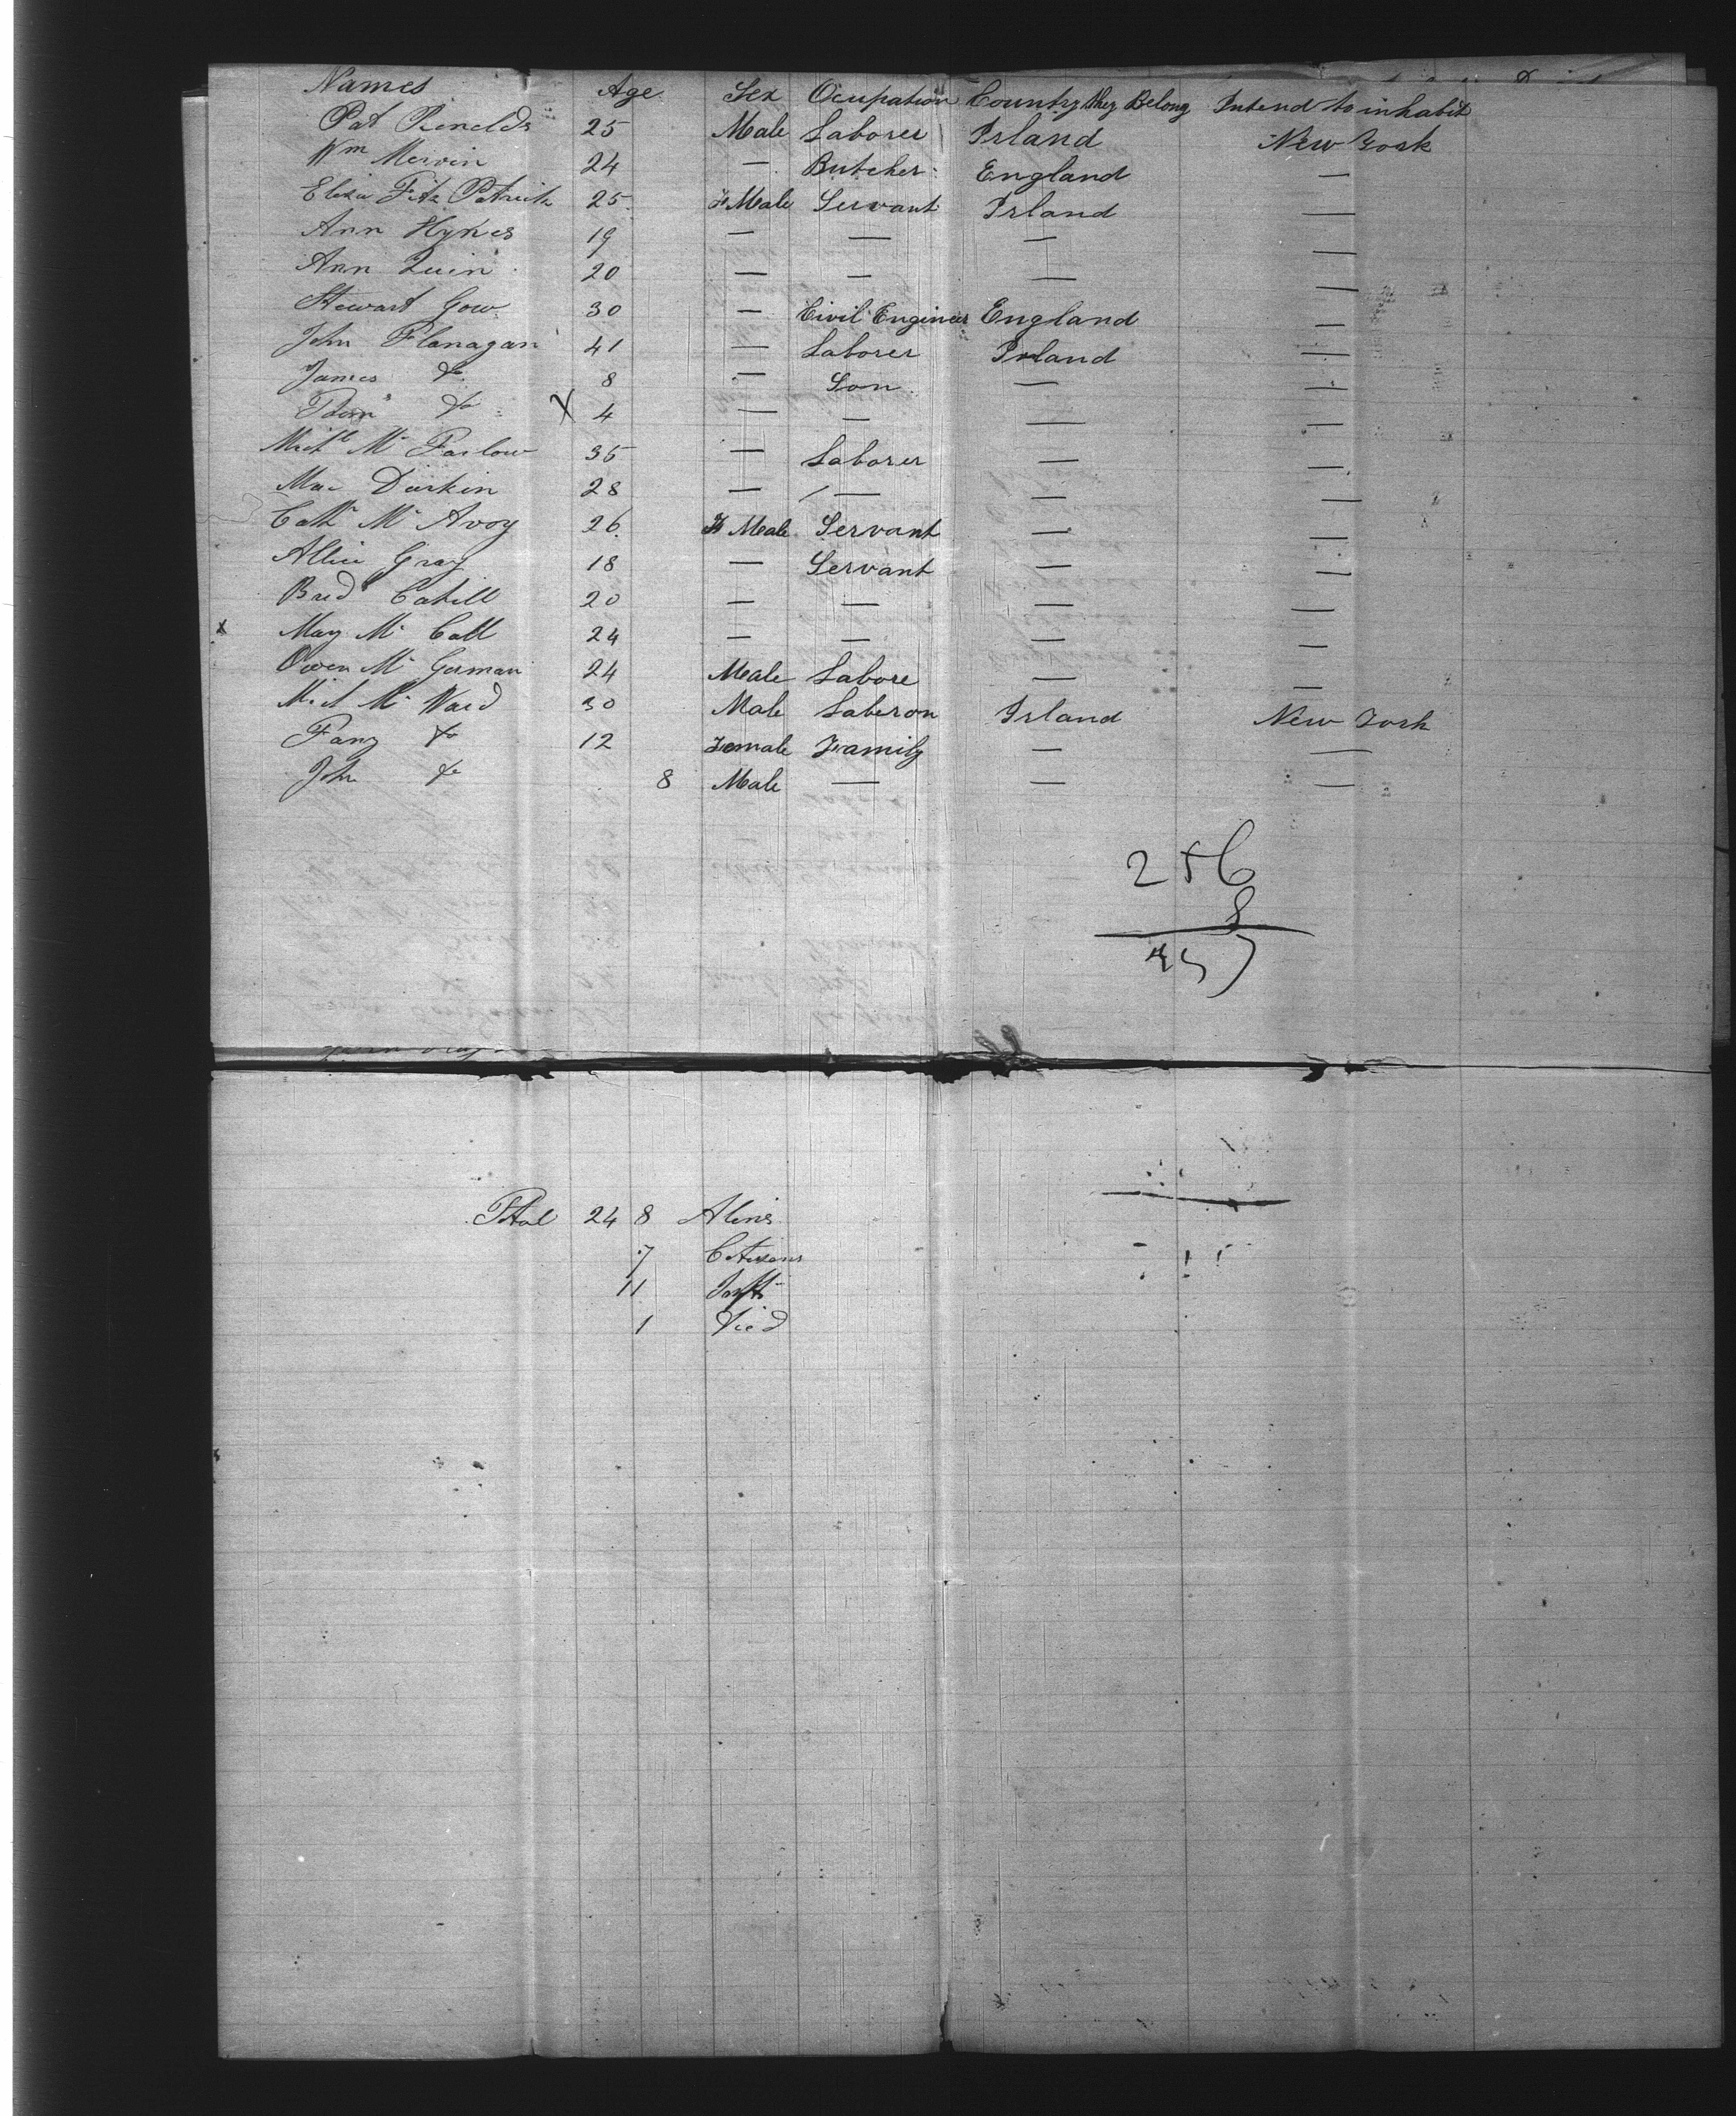 Names Age Sex Ocupation Country they Belong Intend to inhabit
Pat Rinelds 25 Male Laborer Irland New York
Wm Mervin 24 — Butcher England —
Eliza Fitz Patrick 25 FMale Servant Irland —
Ann Hynes 19 — — — —
Ann Quin 20 — — — —
Stewart Gow 30 — Civil Engineer England —
John Flanagan 41 — Laborer Irland —
James do 8 — Son — —
do X 4 — — — —
Mc 35 — Laborer — —
Durkin 28 — — — —
Cath Mc Avoy 26 FMale Servant — —
Allice Gray 18 — Servant — —
Brid Cahill 20 — — — —
x May Mc Call 24 — — — —
Owen Mc Gorman 24 Male Labore — —
Mc Ward 30 Male Laberon Irland New York
Fany do 12 Female Family — —
John do 8 Male — — —
256
8
257
Total 248 Alins
7 Citizens
11 Infts
1 Died